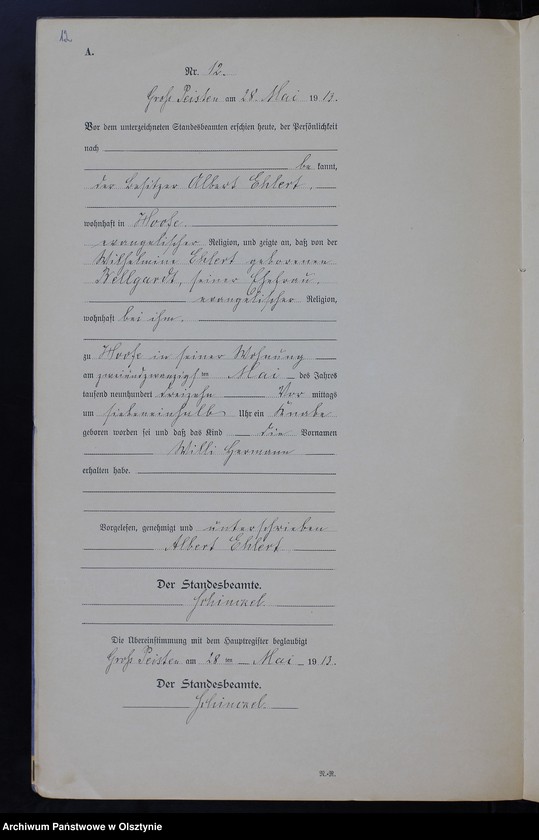 12
A.
Nr. 12.
Groß Peisten am 28. Mai 1913.
Vor dem unterzeichneten Standesbeamten erschien heute, der Persönlichkeit
nach
be kannt,
der Besitzer Albert Ehlert.
wohnhaft in Hoofe.
evangelischer Religion, und zeigte an, daß von der
Wilhelmine Ehlert geborenen
Wellgardt, seiner Ehefrau.
evangelischer Religion,
wohnhaft bei ihm.
zu Hoofe in seiner Wohnung
am zweiundzwanzigsten Mai des Jahres
tausend neunhundert dreizehn Vor mittags
um siebeneinhalb Uhr ein Knabe
geboren worden sei und daß das Kind die Vornamen
Willi Hermann
erhalten habe.
Vorgelesen, genehmigt und unterschrieben
Albert Ehlert
Der Standesbeamte.
Schinckel.
Die Übereinstimmung mit dem Hauptregister beglaubigt
Groß Peisten am 28ten Mai 1913.
Der Standesbeamte.
Schinckel.
N.-R.
Archiwum Państwowe w Olsztynie